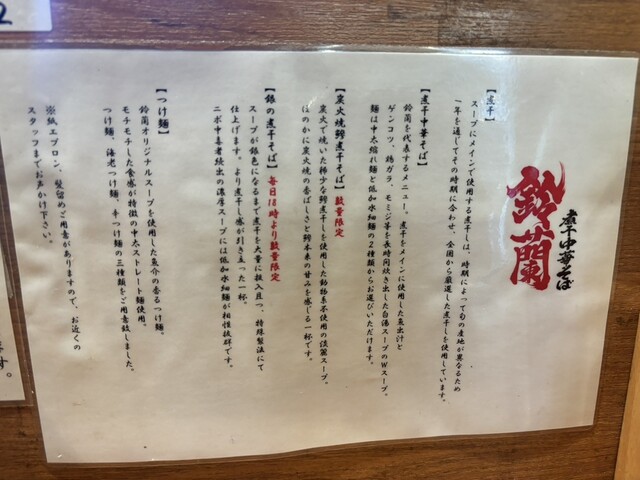 煮干中華そば
鈴蘭
【煮干】
スープにメインで使用する煮干しは、時期によって旬の産地が異なるため
一年を通じてその時期に合わせ、全国から厳選した煮干しを使用しています。
【煮干中華そば】
鈴蘭を代表するメニュー。煮干をメインに使用した魚出汁と
ゲンコツ、鶏ガラ、モミジ等を長時間炊き出した白湯スープのWスープ。
麺は中太縮れ麺と低加水細麺の2種類からお選びいただけます。
【炭火焼鯵煮干そば】数量限定
炭火で焼いた稀少な鯵煮干しを使用した動物系不使用の淡麗スープ。
ほのかに炭火焼の香ばしさと鯵本来の甘みを感じる一杯です。
【銀の煮干そば】毎日18時より数量限定
スープが銀色になるまで煮干を大量に投入且つ、特殊製法にて
仕上げます。より煮干し感が引き立った一杯。
ニボ中毒者続出の濃厚スープには低加水細麺が相性抜群です。
【つけ麺】
鈴蘭オリジナルスープを使用した魚介の香るつけ麺。
モチモチした食感が特徴の中太ストレート麺使用。
つけ麺、海老つけ麺、辛つけ麺の三種類をご用意致しました。
※紙エプロン、髪留めご用意がありますので、お近くの
スタッフまでお声かけ下さい。
ます。
2